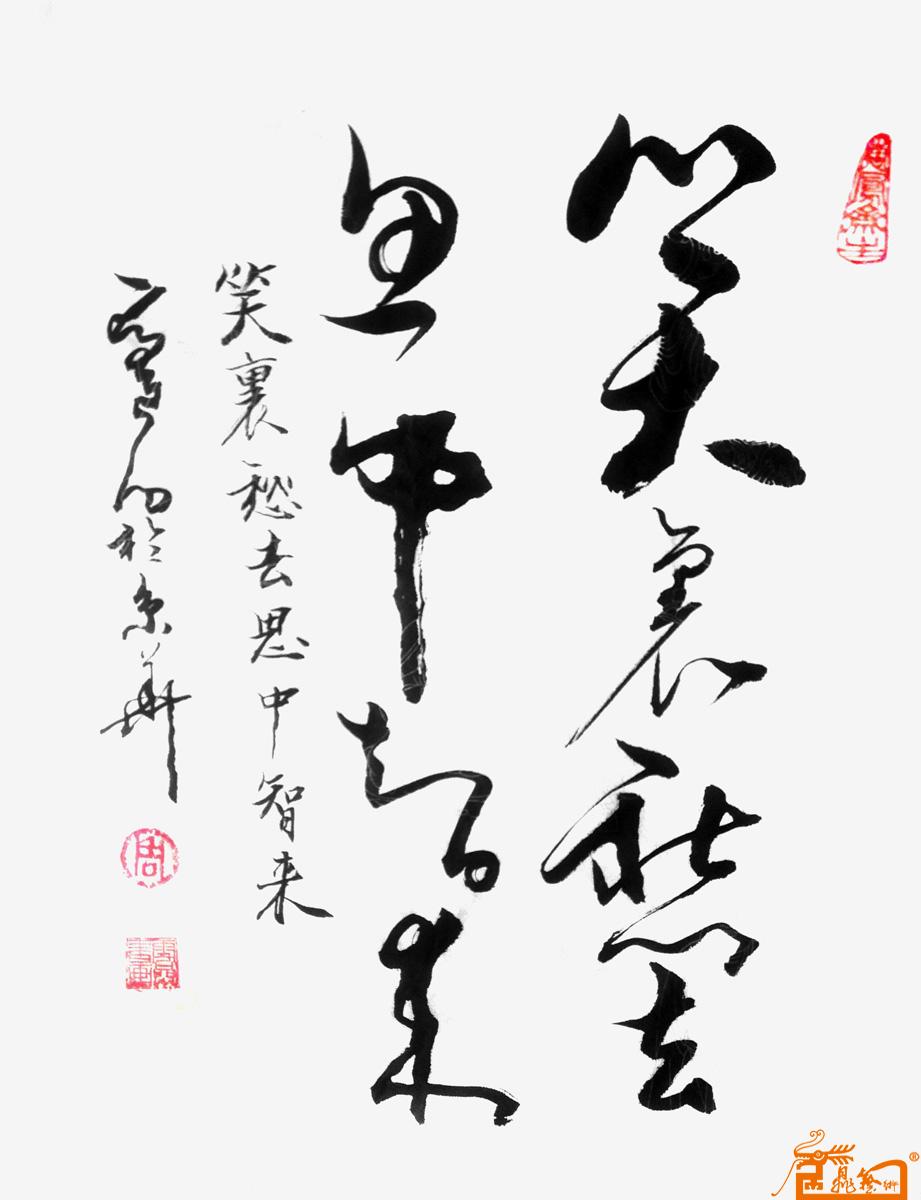 笑裏愁去
思中智来
笑裏愁去思中智来
於京華
周